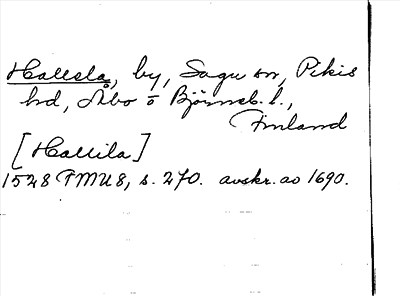 Hallela, by, Sagu sn, Pikis
hd, Åbo o Björneb. l.,
Finland
[Hallila]
1528 FMU 8, s. 270. avskr. av 1690.